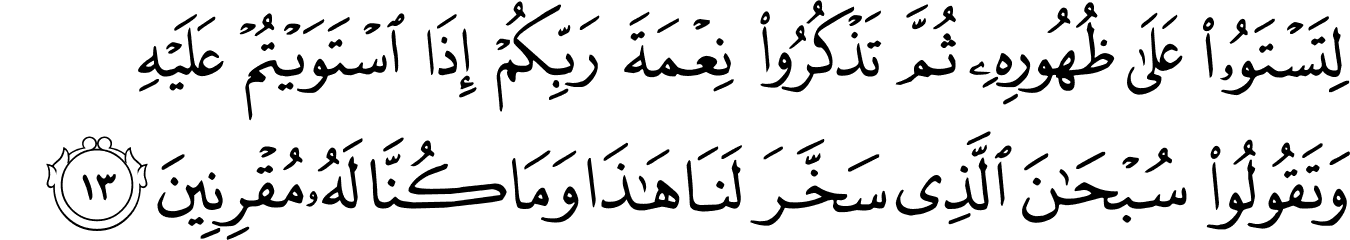 لِتَسْتَوُۥا۟ عَلَىٰ ظُهُورِهِۦ ثُمَّ تَذْكُرُوا۟ نِعْمَةَ رَبِّكُمْ إِذَا ٱسْتَوَيْتُمْ عَلَيْهِ
وَتَقُولُوا۟ سُبْحَٰنَ ٱلَّذِى سَخَّرَ لَنَا هَٰذَا وَمَا كُنَّا لَهُۥ مُقْرِنِينَ ١٣